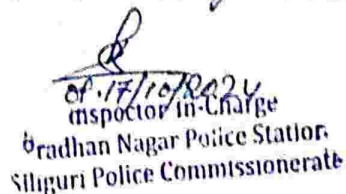 of.17/10/2024
Inspector in-Charge
Pradhan Nagar Police Station
Siliguri Police Commissionerate